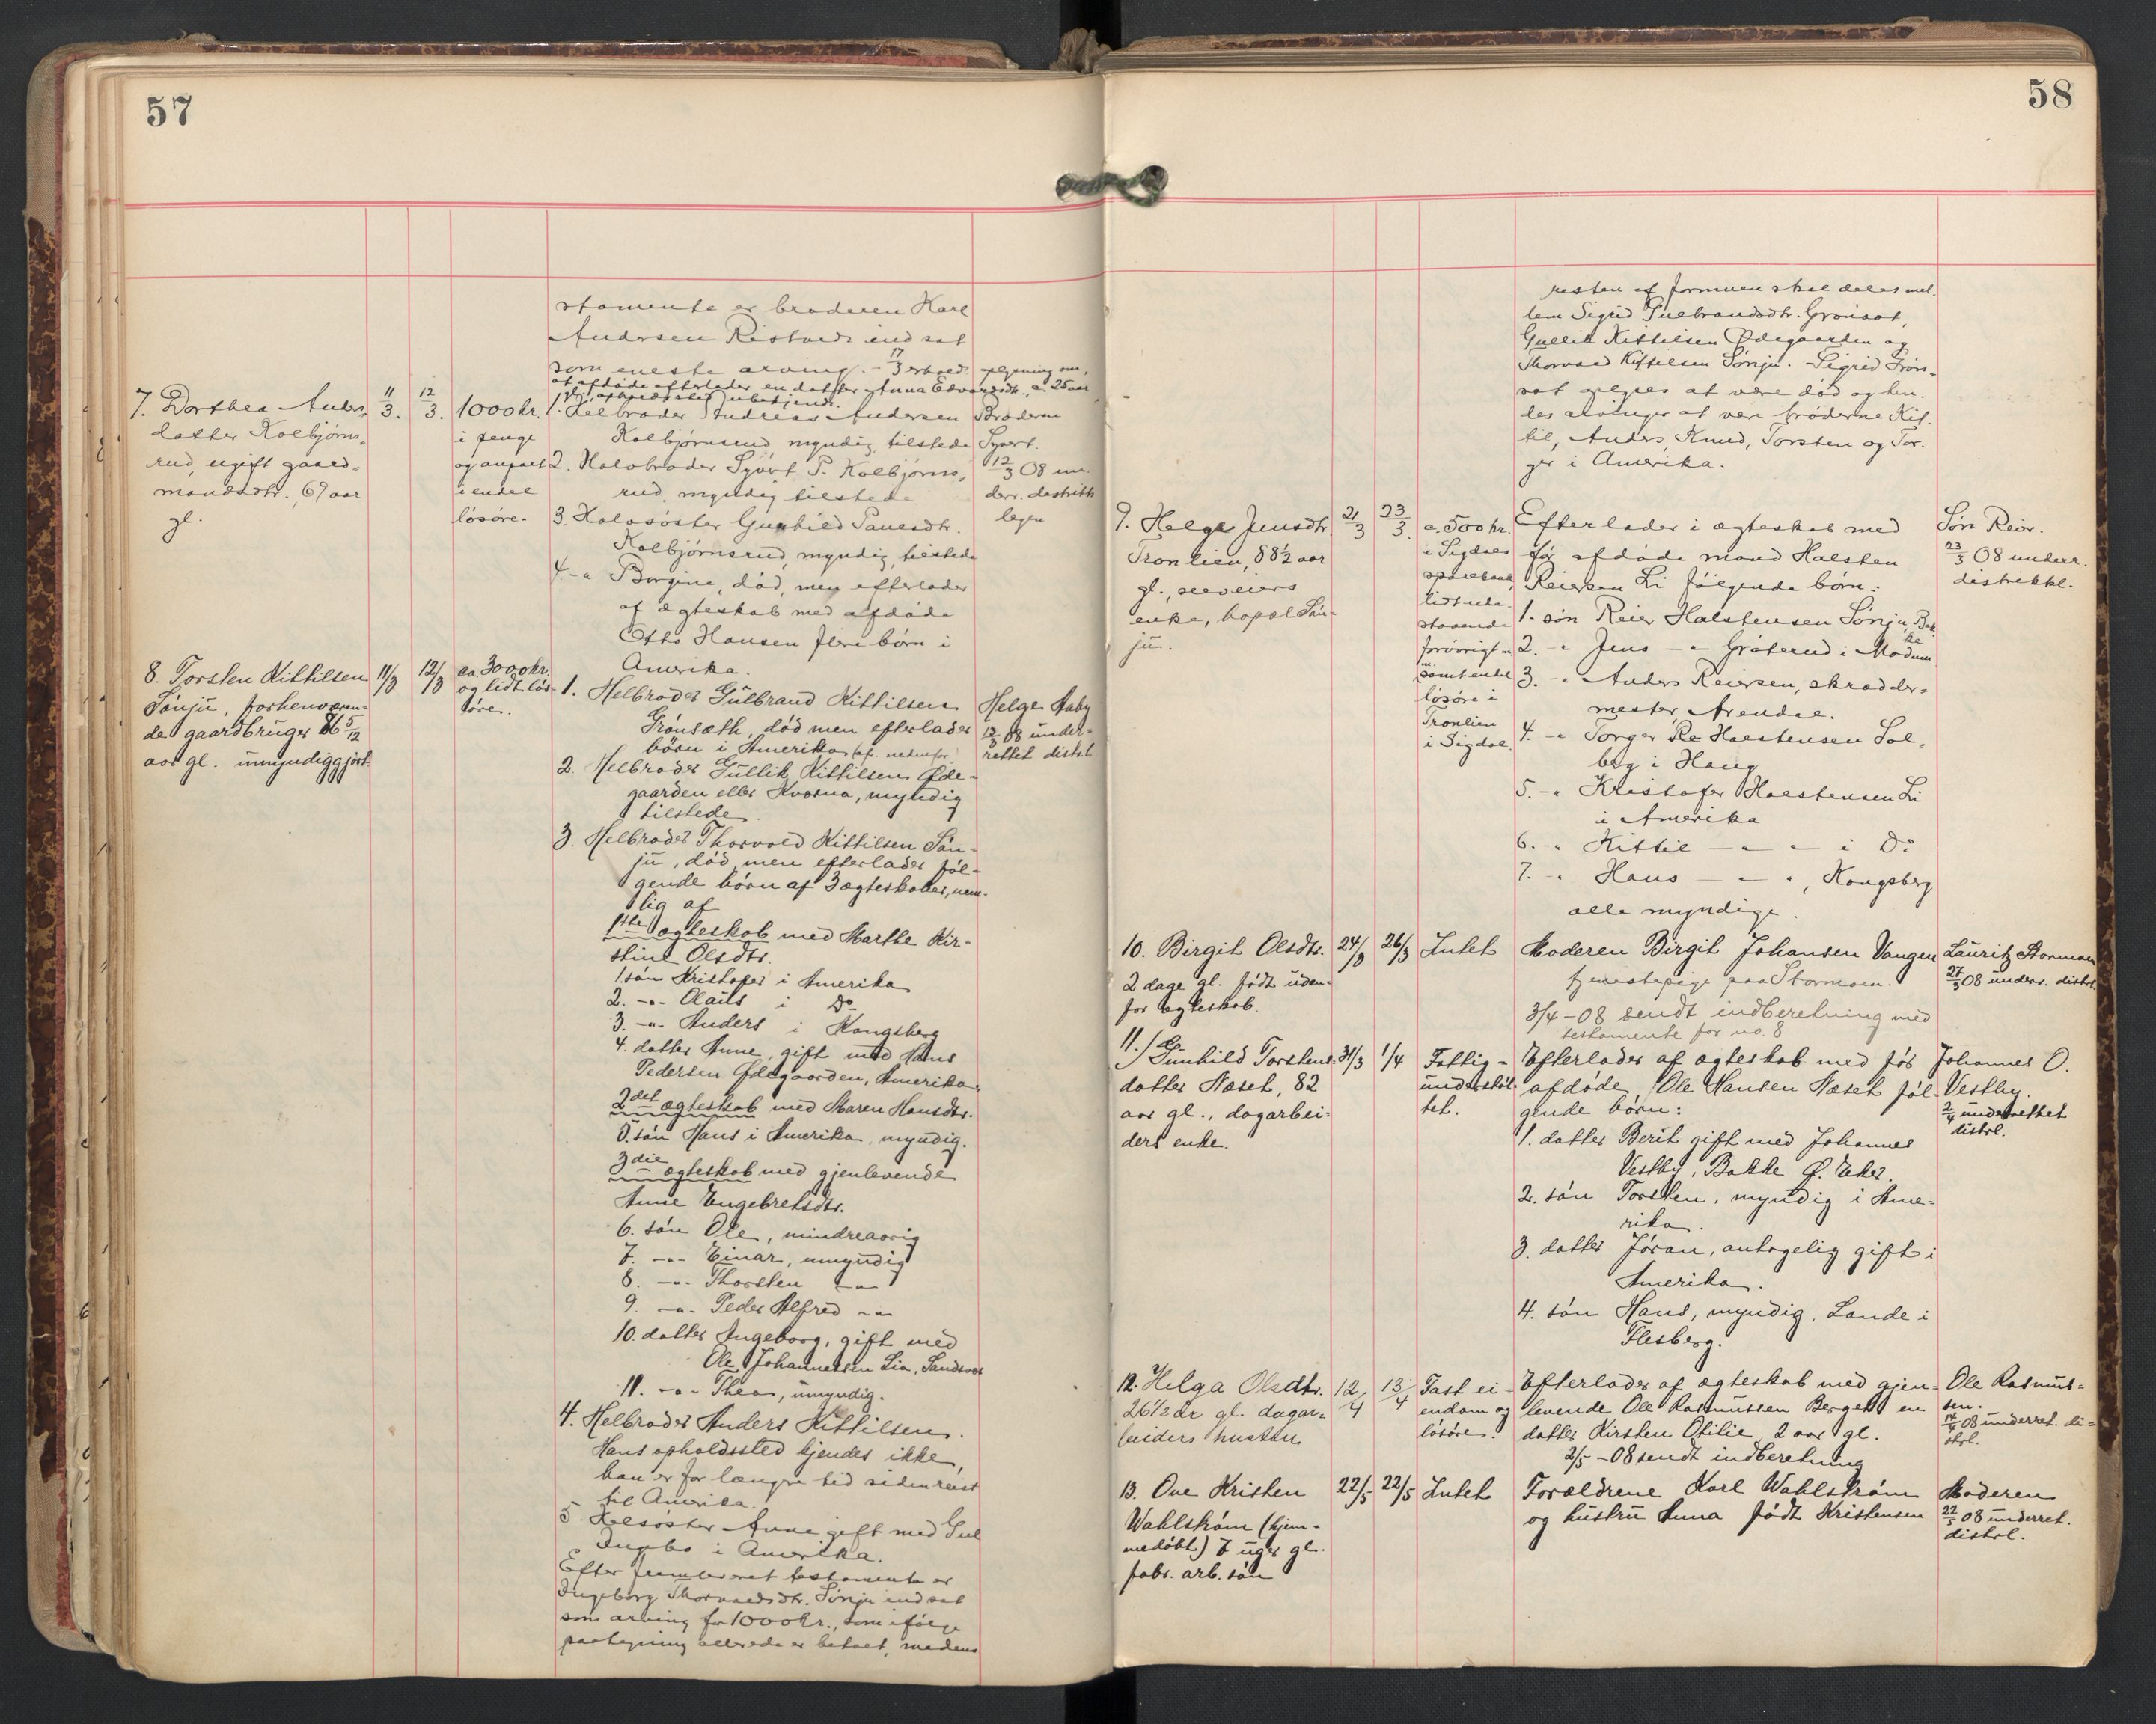 57
stamente er broderen Karl
Andersen Ristvedt indsat
som eneste arving. - 17/3 erholdt oplysning om,
at afdøde efterlader en datter Anna Edvardsdtr., ca. 25 aar,
7. Dorthea Anders-
datter Kolbjørns-
rud, ugift gaard-
mandsdtr., 69 aar
gl.
11/3.
12/3.
1000 kr.
i penge
og angivelt
endel
løsøre.
1. Helbroder Andreas Andersen
Kolbjørnsrud, myndig, tilstede
2. Halvbroder Syvert P. Kolbjørns-
rud, myndig tilstede
3. Halvsøster Gunhild Paulsdtr.
Kolbjørnsrud, myndig, tilstede
4. -" Borgine, død, men efterlader
af ægteskab med afdøde
Otto Hansen flere børn i
Amerika.
Broderen
Syvert.
12/3 08 un-
derr. distrikts
legen
8. Torsten Kittilsen
Sønju, forhenværen-
de gaardbruger 86 5/12
aar gl. umyndiggjort
11/3
12/3
ca. 3000 kr.
og lidt løs-
øre.
1. Helbroder Gulbrand Kittilsen
Grønsæth, død men efterlader
børn i Amerika (cfr. nedenfor)
2. Helbroder Gullik Kittilsen Øde-
gaarden eller Kvarna, myndig
tilstede.
3. Helbroder Thorvald Kittilsen Søn-
ju, død, men efterlader føl-
gende børn af 3 ægteskaber, nem-
lig af
1ste ægteskab med Marthe Kir-
stine Olsdtr.
1. søn Kristofer i Amerika
2. -"- Olaus i Do
3. -"- Anders i Kongsberg
4. datter Anne, gift med Hans
Pedersen Ødegaarden, Amerika
2det ægteskab med Maren Hansdtr.
5. søn Hans i Amerika, myndig.
3die ægteskab med gjenlevende
Anne Engebretsdtr.
6. søn Ole, mindreaarig
7. -"- Einar, umyndig
8. -"- Thorsten -"-
9. -"- Peder Alfred -"-
10. datter Ingeborg, gift med
Ole Johannessen Lia, Sandsvær
11. -"- Thea, umyndig.
4. Helbroder Anders Kittilsen.
Hans opholdssted kjendes ikke,
han er for længre tid siden reist
til Amerika.
5. Helsøster Anne gift med Gul
Ingbo i Amerika.
Efter fremlevert testamente er
Ingeborg Thorvaldsdtr. Sønju indsat
som arving for 1000 kr., som ifølge
paategning allerede er betalt, medens
Helge Aaby
12/3 08 under-
rettet distrl.
58
resten af formuen skal deles mel-
lem Sigrid Gulbrandsdtr. Grønsæt,
Gullik Kittilsen Ødegaarden og
Thorvald Kittilsen Sønju. - Sigrid Grøn-
sæt opgives at være død og hen-
des arvinger at være brødrene Kit-
til, Anders, Knud, Torsten og Tor-
ger i Amerika.
9. Helge Jensdtr.
Tronlien, 88 1/2 aar
gl.,
enke, bopæl Søn-
ju.
21/3
23/3.
ca. 500 kr.
i Sigdals
sparebank,
lidt ude-
staaende
forøvrigt
samt endel
løsøre i
Tronlien
i Sigdal.
Efterlader i ægteskab med
før afdøde mand Halsten
Reiersen Li følgende børn:
1. søn Reier Halstensen Sønju, Bak-
ke
2. -" Jens -" Gråterud i Modum
3. -" Anders Reiersen, skrædder-
mester, Arendal.
4. -" Torger Halstensen Sol-
berg i Haug
5. -" Kristofer Halstensen Li
i Amerika
6. -" Kittil -"- i Do
7. -" Hans -"-, Kongsberg
alle myndige.
Søn Reier.
23/3 08 underr.
distriktsl.
10. Birgit Olsdtr.
2 dage gl. født uden-
for ægteskab.
24/3
26/3
Intet
Moderen Birgit Johansen Vangen
tjenestepige paa Stormoen.
3/4 - 08 sendt indberetning med
testamente for no. 8
Lauritz Stormoen
27/3 08 underr. distrl.
11. Gunhild Torstens-
datter Næset, 82
aar gl., dagarbei-
ders enke.
31/3
1/4
Fattig-
understøt-
tet.
Efterlader af ægteskab med før
afdøde Ole Hansen Næset føl-
gende børn:
1. datter Berit gift med Johannes
Vestby, Bakke Ø. Eker.
2. søn Torsten, myndig i Ame-
rika.
3. datter Jøran, antagelig gift i
Amerika.
4. søn Hans, myndig, Lande i
Flesberg.
Johannes O.
Vestby.
2/4 underrettet
distrl.
12. Helga Olsdtr.
26 1/2 år gl. dagar-
beiders hustru
12/4
13/4
Fast ei-
endom og
løsøre.
Efterlader af ægteskab med gjen-
levende Ole Rasmussen Berget en
datter Kirsten Otilie, 2 aar gl.
2/5 - 08 sendt indberetning
Ole Rasmus-
sen.
14/4 08 underret. di-
strl.
13. Ove Kristen
Wahlstrøm (hjem-
medøbt) 7 uger gl.
fabr. arb. søn
22/5
22/5
Intet
Forældrene Karl Wahlstrøm
og hustru Anna født Kristensen
Moderen
22/5 08 underret.
distrl.